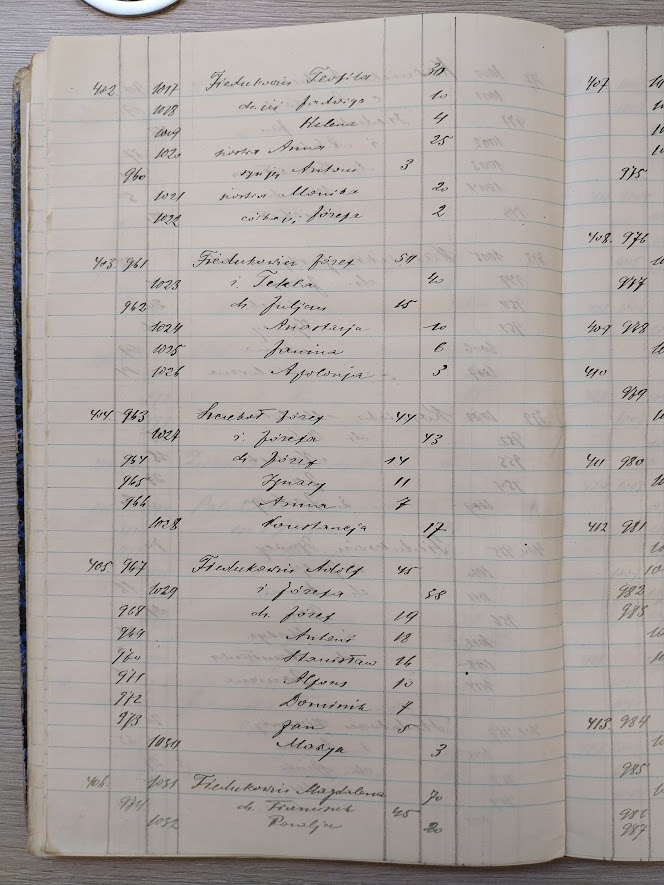 402 1017 Fiedukowicz Teofila 30
1018 dzieci Jadwiga 10
1019 Helena 4
1020 siostra Anna 25
960 syn jej Antoni 3
1021 siostra Monika 20
1022 córka jej Józefa 2
403 961 Fiedukowicz Józef 50
1023 ż. Tekla 40
962 dz. Juljan 15
1024 Anastazja 10
1025 Janina 6
1026 Apolonja 3
404 963 Józef 44
1027 ż. Józefa 43
964 dz. Józef 14
965 Ignacy 11
966 Anna 7
1028 Konstancja 17
405. 967 Fiedukowicz Adolf 45
1029 ż. Józefa 38
968 dz. Józef 19
969 Antoni 18
970 Stanisław 16
971 Alfons 10
972 Dominik 7
973 Jan 5
1030 Marya 3
406. 1031 Fiedukowicz Magdalena 70
974 dz. Franciszek 45
1032 Rozalja 20
407
975
408. 976
977
409 978
410
979
411 980
412 981
982
983
413. 984
985
986
987